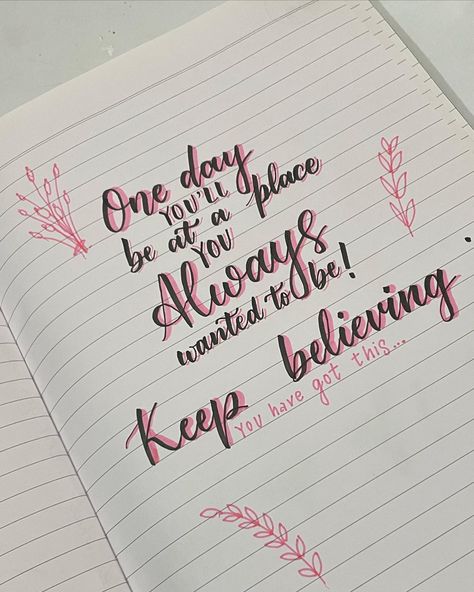 One day
YOU'LL
be at a place
YOU
Always
wanted to be!
Keep believing.
You have got this...